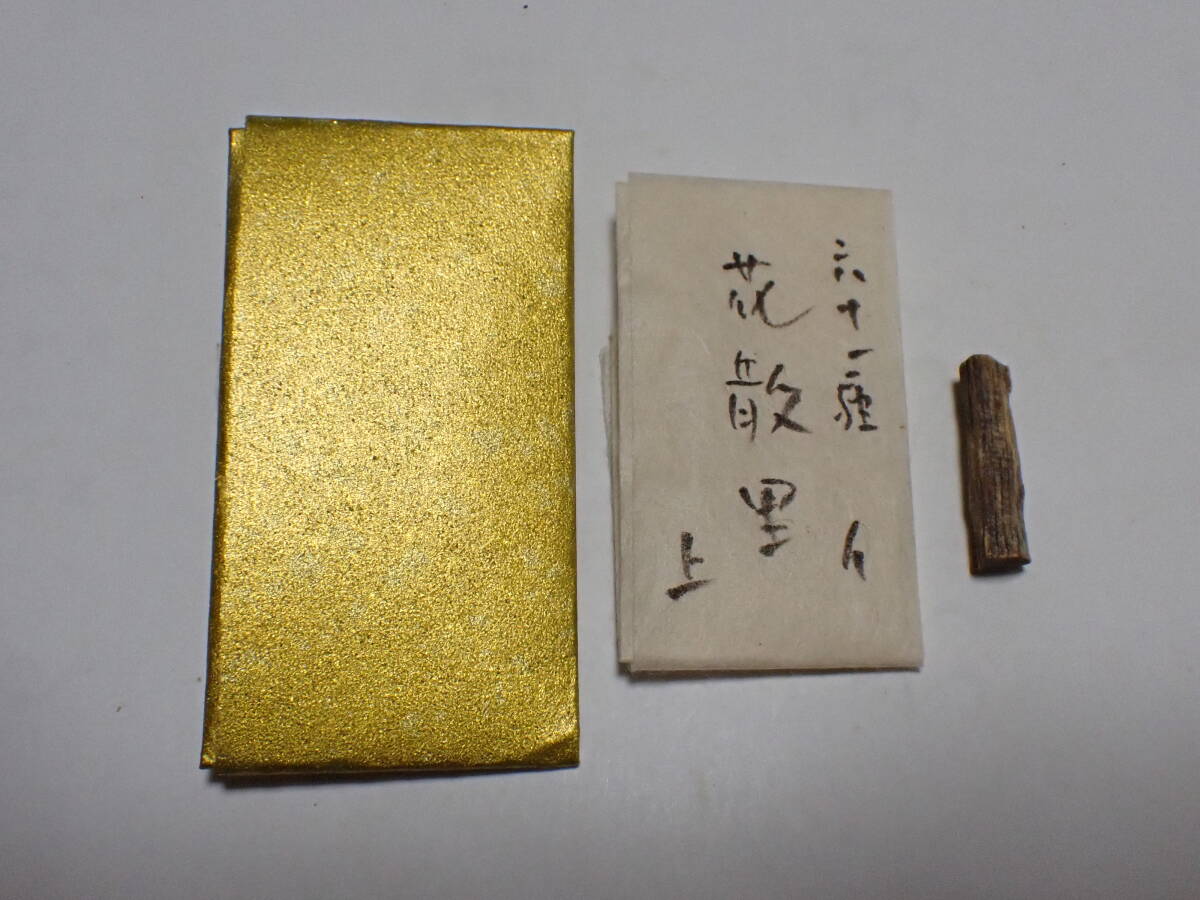 六十一種
花散里
上